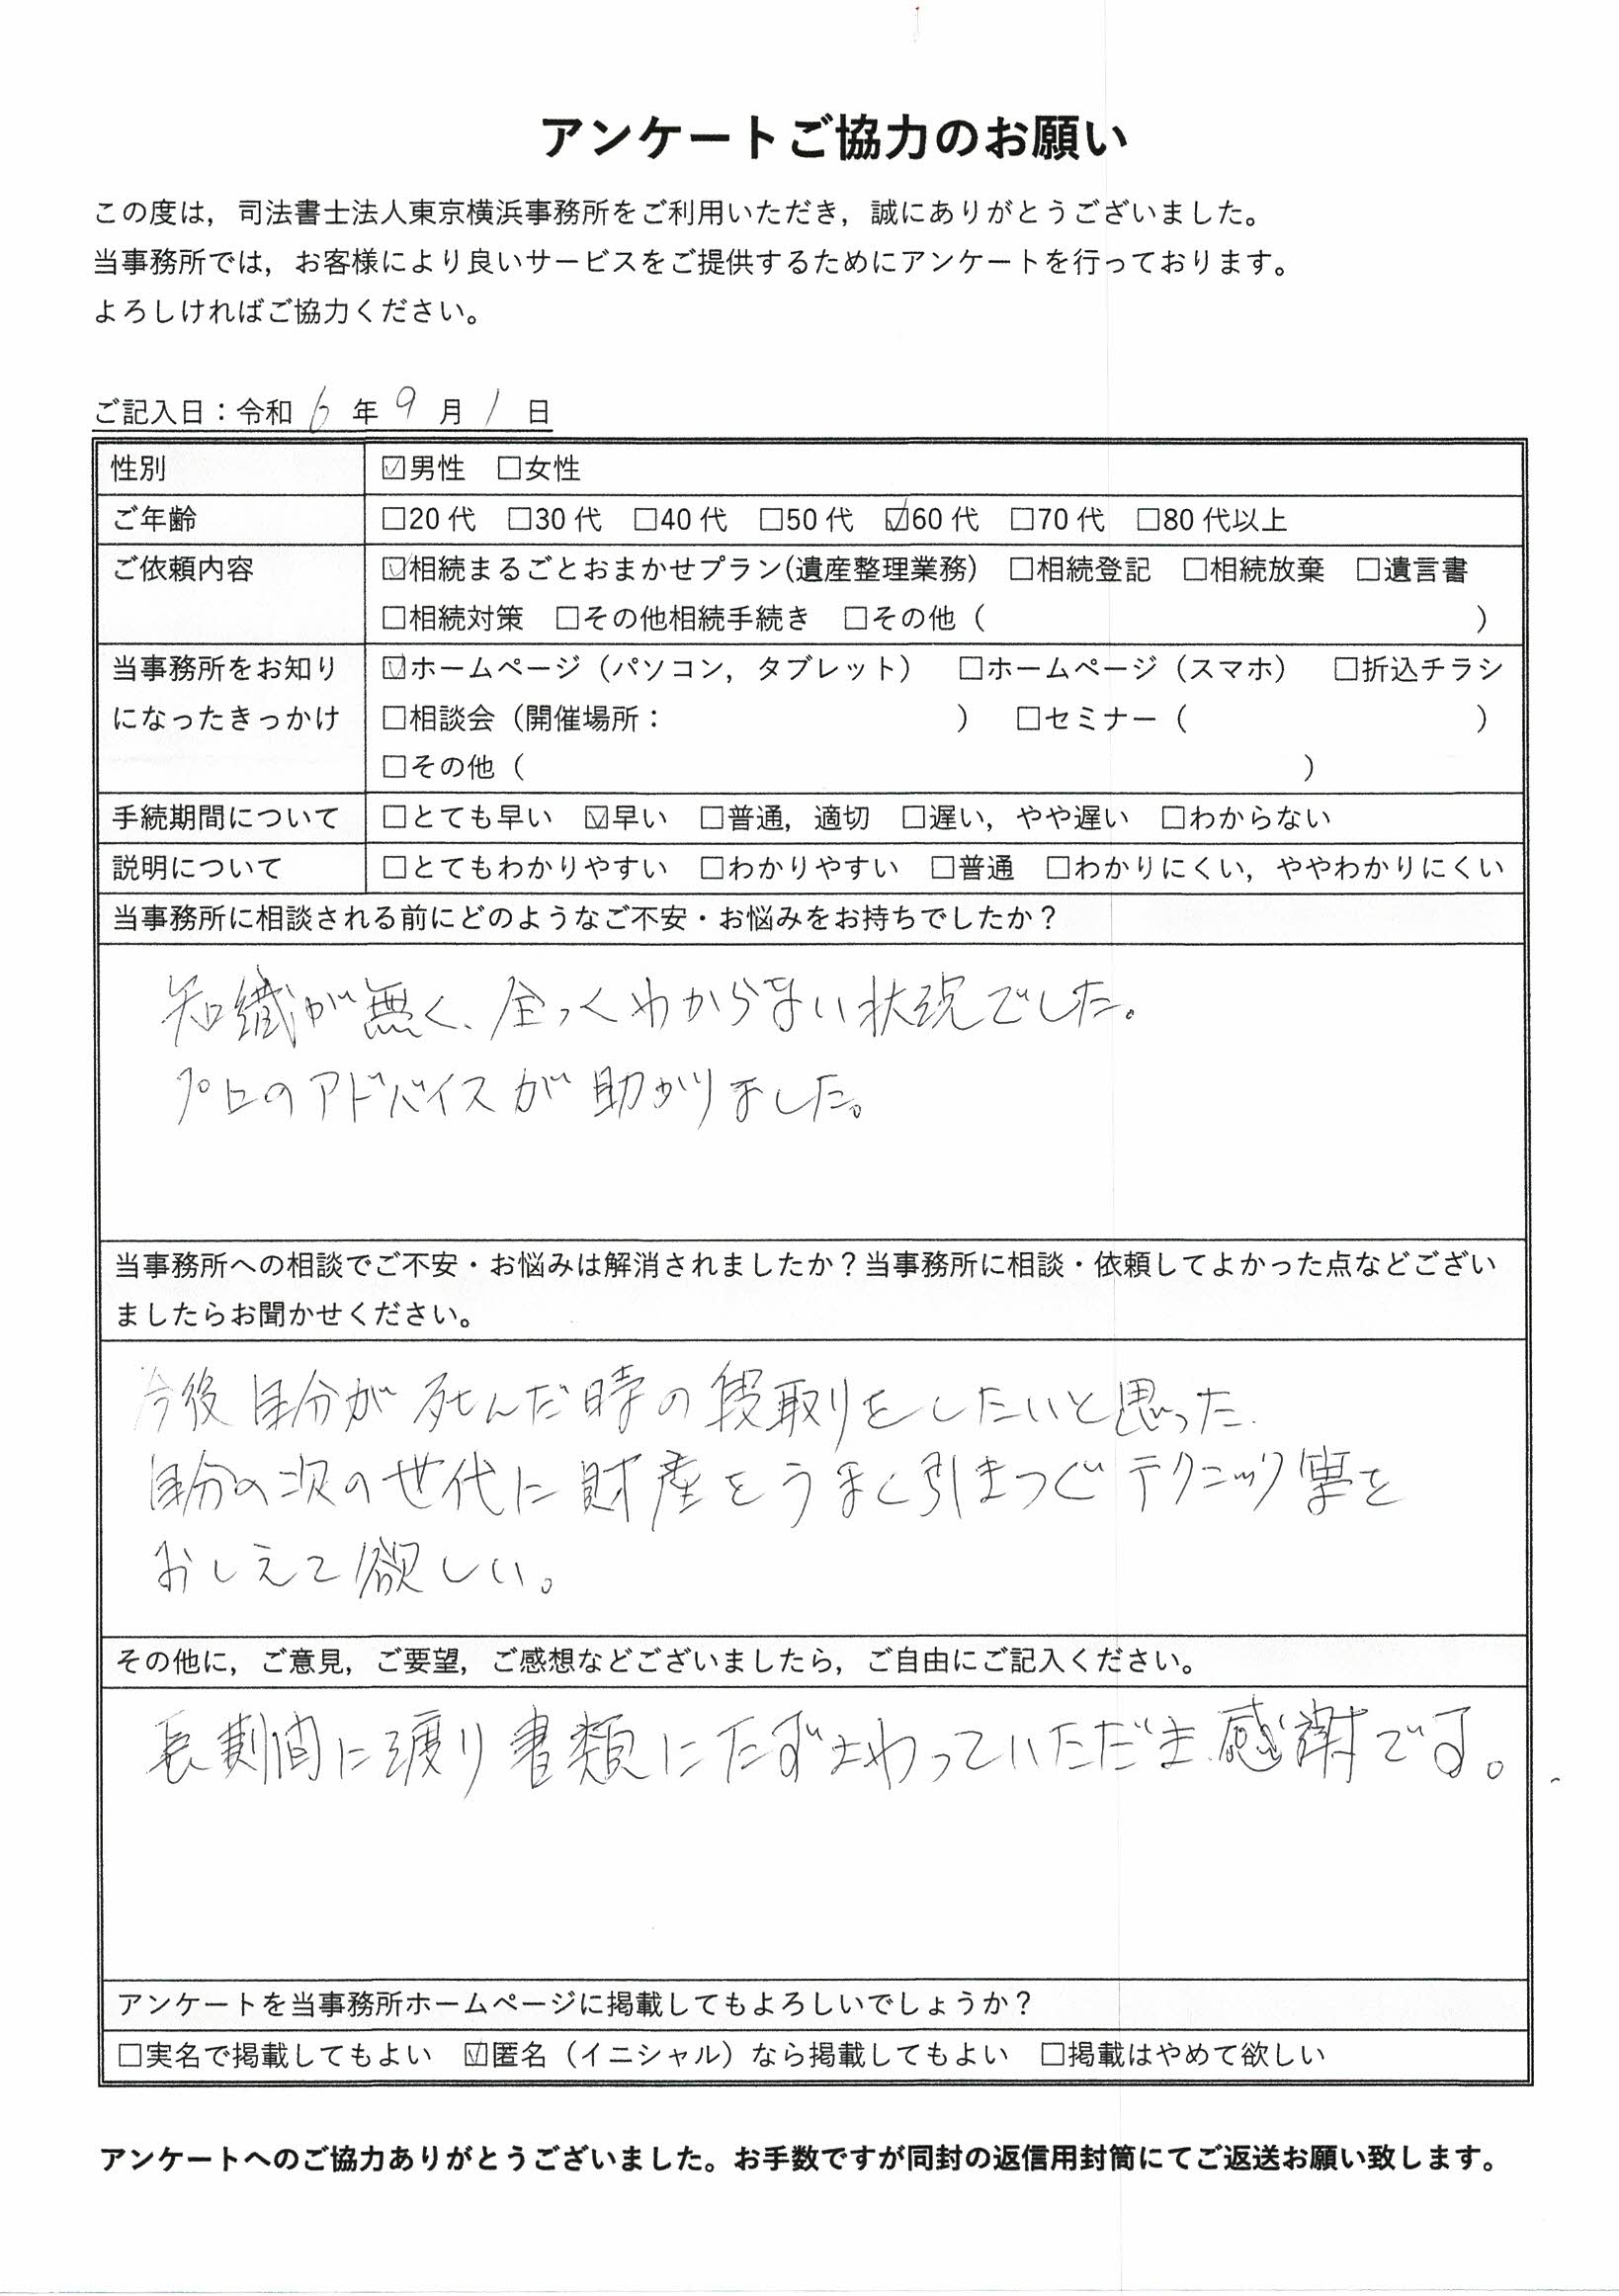 アンケートご協力のお願い
この度は，司法書士法人東京横浜事務所をご利用いただき，誠にありがとうございました。
当事務所では，お客様により良いサービスをご提供するためにアンケートを行っております。
よろしければご協力ください。
ご記入日：令和 6 年 9 月 1 日
性別 ☑男性 □女性
ご年齢 □20代 □30代 □40代 □50代 ☑60代 □70代 □80代以上
ご依頼内容 ☑相続まるごとおまかせプラン(遺産整理業務) □相続登記 □相続放棄 □遺言書
□相続対策 □その他相続手続き □その他（ ）
当事務所をお知り ☑ホームページ（パソコン，タブレット） □ホームページ（スマホ） □折込チラシ
になったきっかけ □相談会（開催場所： ） □セミナー（ ）
□その他（ ）
手続期間について □とても早い ☑早い □普通，適切 □遅い，やや遅い □わからない
説明について □とてもわかりやすい □わかりやすい □普通 □わかりにくい，ややわかりにくい
当事務所に相談される前にどのようなご不安・お悩みをお持ちでしたか？
知識が無く、全っくわからない状況でした。
プロのアドバイスが助かりました。
当事務所への相談でご不安・お悩みは解消されましたか？当事務所に相談・依頼してよかった点などござい
ましたらお聞かせください。
今後自分が死んだ時の段取りをしたいと思った.
自分の次の世代に財産をうまく引きつぐテクニック等を
おしえて欲しい。
その他に，ご意見，ご要望，ご感想などございましたら，ご自由にご記入ください。
長期間に渡り書類にたずさわっていただき感謝です。
アンケートを当事務所ホームページに掲載してもよろしいでしょうか？
□実名で掲載してもよい ☑匿名（イニシャル）なら掲載してもよい □掲載はやめて欲しい
アンケートへのご協力ありがとうございました。お手数ですが同封の返信用封筒にてご返送お願い致します。